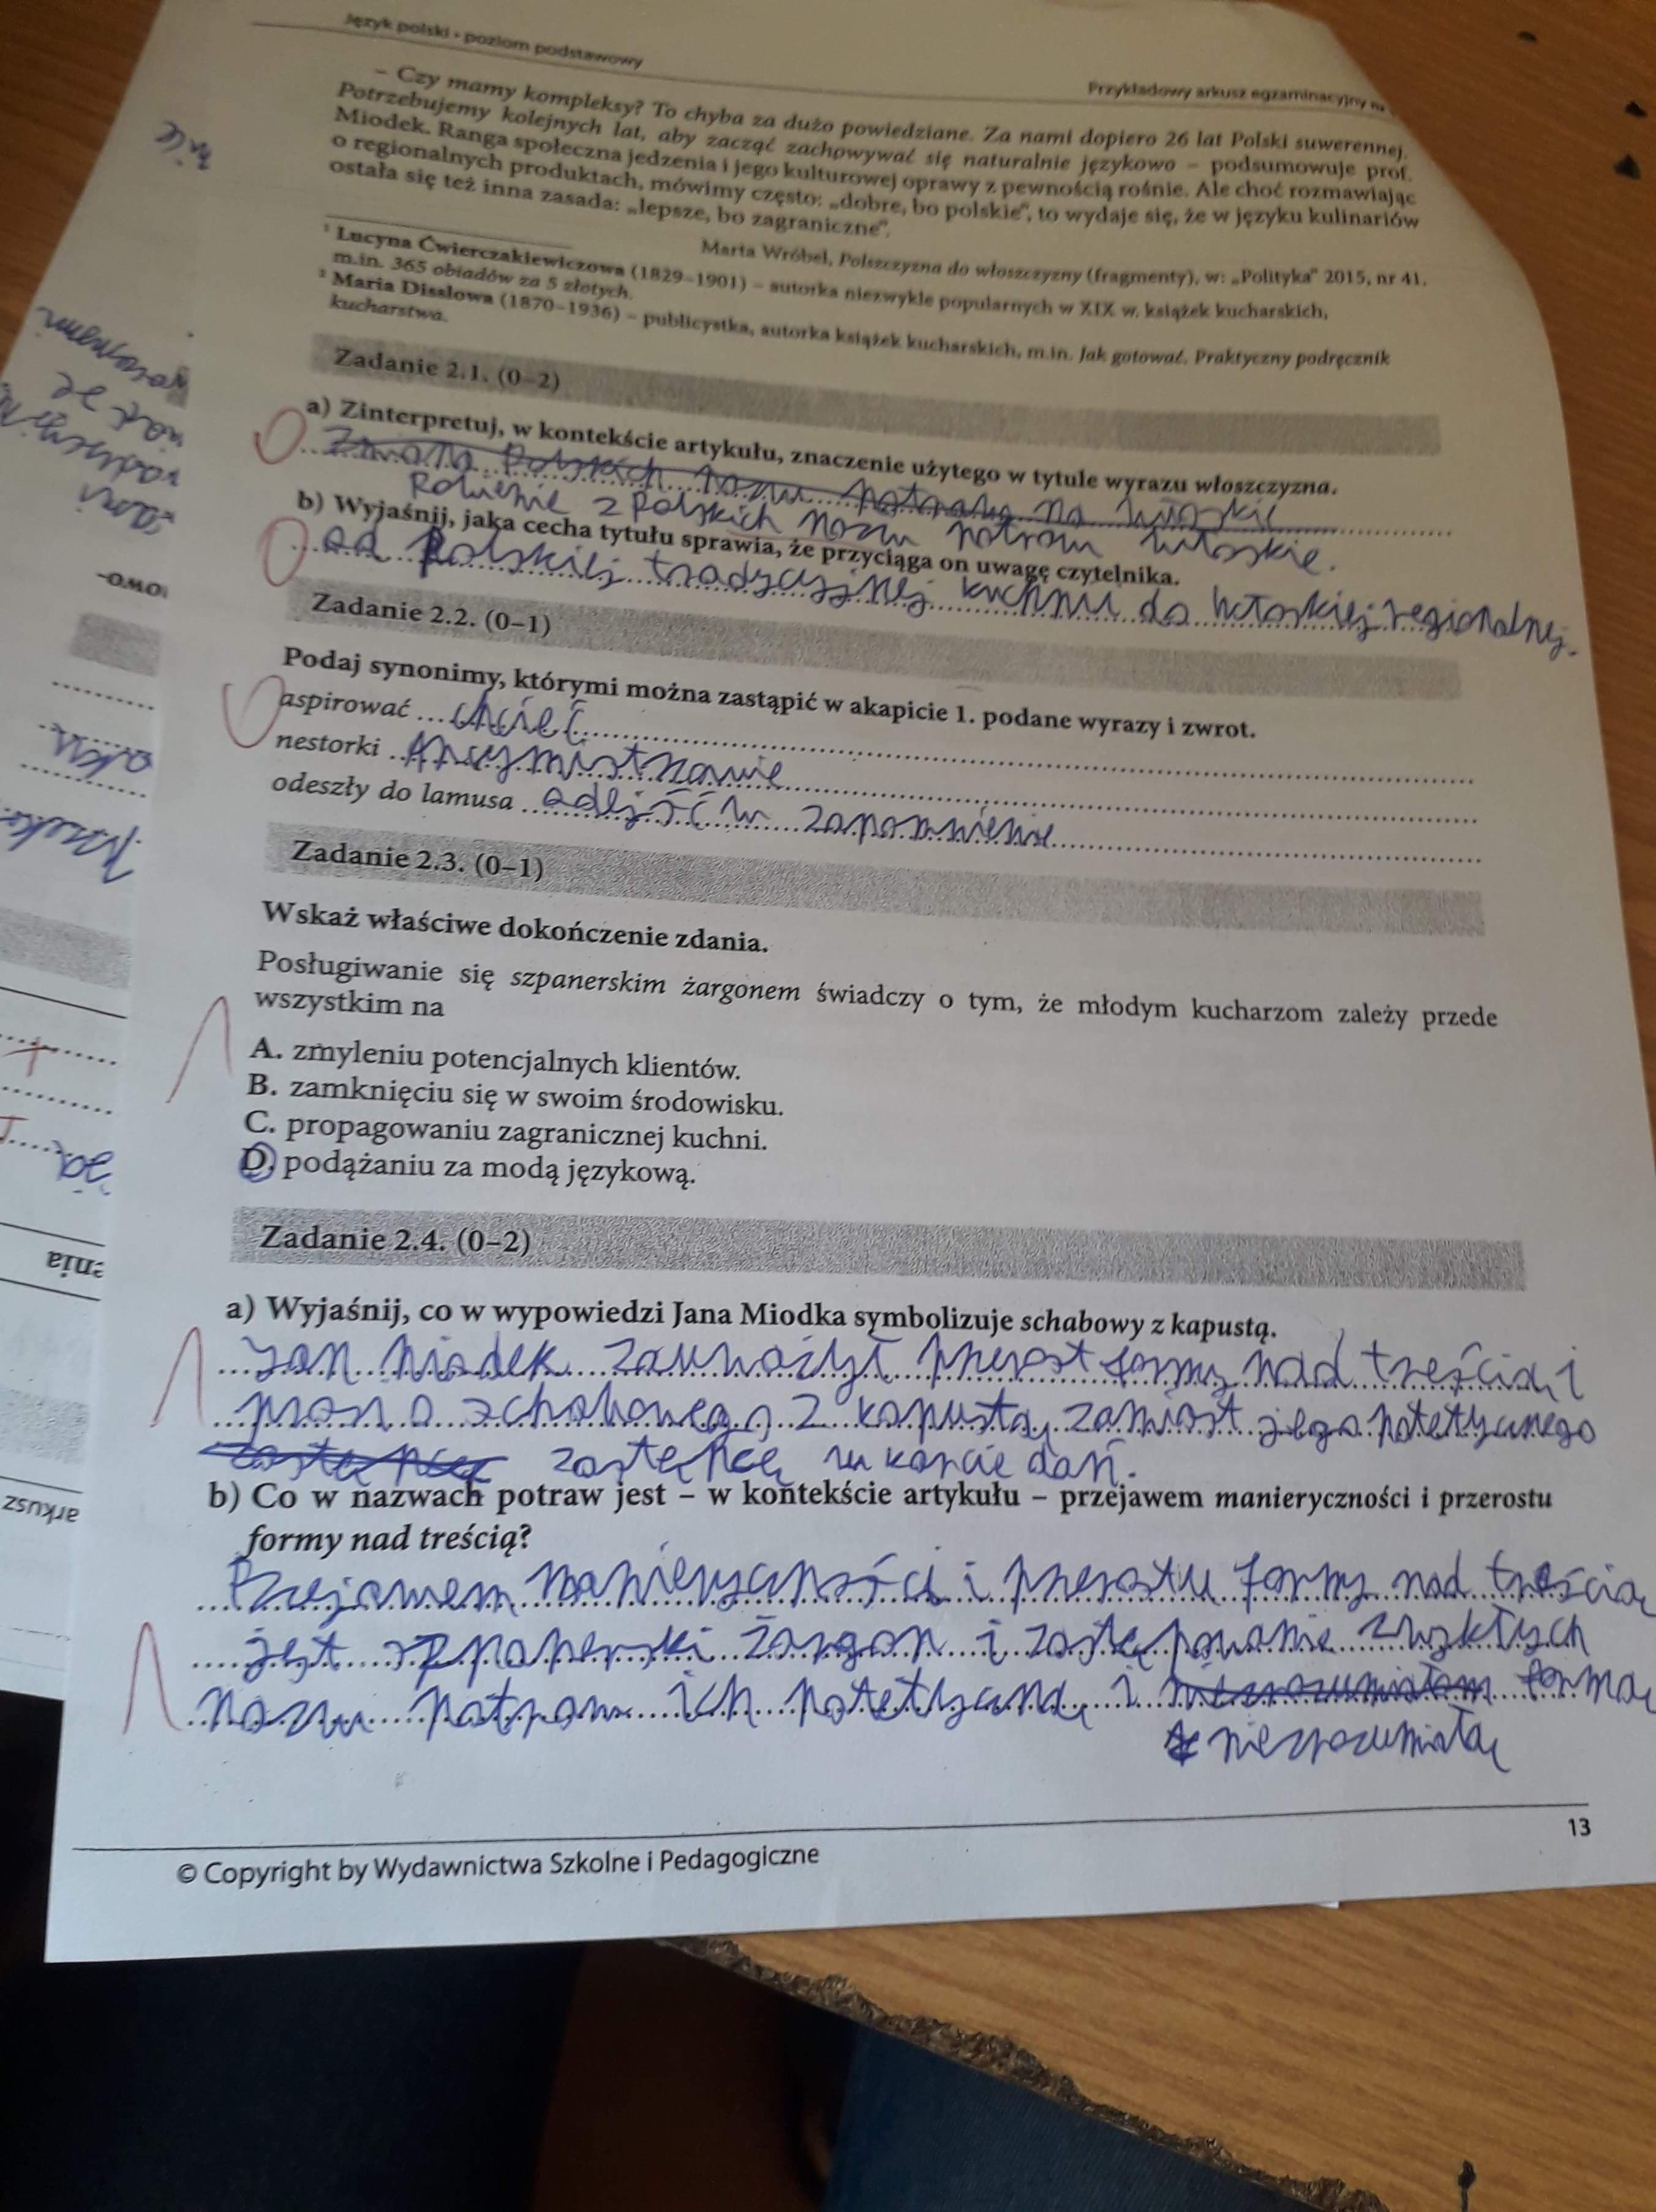 Język polski • poziom podstawowy
Przykładowy arkusz egzaminacyjny
– Czy mamy kompleksy? To chyba za dużo powiedziane. Za nami dopiero 26 lat Polski suwerennej.
Potrzebujemy kolejnych lat, aby zacząć zachowywać się naturalnie językowo – podsumowuje prof.
Miodek. Ranga społeczna jedzenia i jego kulturowej oprawy z pewnością rośnie. Ale choć rozmawiając
o regionalnych produktach, mówimy często: „dobre, bo polskie”, to wydaje się, że w języku kulinariów
ostała się też inna zasada: „lepsze, bo zagraniczne”.
Marta Wróbel, Polszczyzna do włoszczyzny (fragmenty), w: „Polityka” 2015, nr 41.
¹ Lucyna Ćwierczakiewiczowa (1829–1901) – autorka niezwykle popularnych w XIX w. książek kucharskich,
m.in. 365 obiadów za 5 złotych.
² Maria Disslowa (1870–1936) – publicystka, autorka książek kucharskich, m.in. Jak gotować. Praktyczny podręcznik
kucharstwa.
Zadanie 2.1. (0–2)
a) Zinterpretuj, w kontekście artykułu, znaczenie użytego w tytule wyrazu włoszczyzna.
Robienie z Polskich nazw potraw włoskie.
b) Wyjaśnij, jaka cecha tytułu sprawia, że przyciąga on uwagę czytelnika.
od Polskiej tradycyjnej kuchni do włoskiej regionalnej.
Zadanie 2.2. (0–1)
Podaj synonimy, którymi można zastąpić w akapicie 1. podane wyrazy i zwrot.
aspirować chcieć
nestorki Arcymistrzowie
odeszły do lamusa odejść w zapomnienie
Zadanie 2.3. (0–1)
Wskaż właściwe dokończenie zdania.
Posługiwanie się szpanerskim żargonem świadczy o tym, że młodym kucharzom zależy przede
wszystkim na
A. zmyleniu potencjalnych klientów.
B. zamknięciu się w swoim środowisku.
C. propagowaniu zagranicznej kuchni.
D. podążaniu za modą językową.
Zadanie 2.4. (0–2)
a) Wyjaśnij, co w wypowiedzi Jana Miodka symbolizuje schabowy z kapustą.
Jan Miodek zauważył przerost formy nad treścią i
prosi o schabowego z kapustą zamiast jego patetycznego
zastępcę w karcie dań.
b) Co w nazwach potraw jest – w kontekście artykułu – przejawem manieryczności i przerostu
formy nad treścią?
Przejawem manieryczności i przerostu formy nad treścią
jest szpanerski żargon i zastępowanie zwykłych
nazw potraw ich patetyczną i formą
niezrozumiałą
13
© Copyright by Wydawnictwa Szkolne i Pedagogiczne